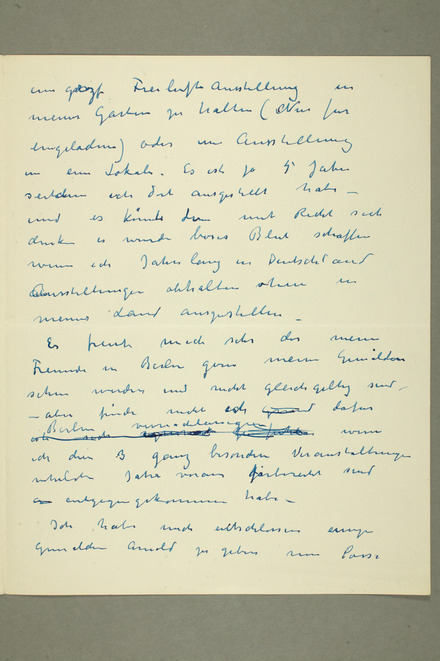 eine große Freilufts Ausstellung in
meinem Garten zu halten (Nur für
eingeladene) oder eine Ausstellung
in ein Lokale. Es ist ja 5 Jahre
seitdem ich dort ausgestellt habe –
und es könnte dem mit Recht sich
denken es wurde böses Blut schaffen
wenn ich Jahrelang in Deutschland
Ausstellungen abhalten ohne in
meines Land auszustellen –
Es freute mich sehr das meine
Freunde in Berlin gern meine Gemälden
sehen werden und nicht gleichgeltig sind –
– aber finde nicht dafür
Berlin wenn
ich die 3 ganz besonders Veranstaltungen
Jahre voraus sind
entgegengekommen habe –
Ich habe mich entschlossen einige
Gemälden Arnold zu geben nun